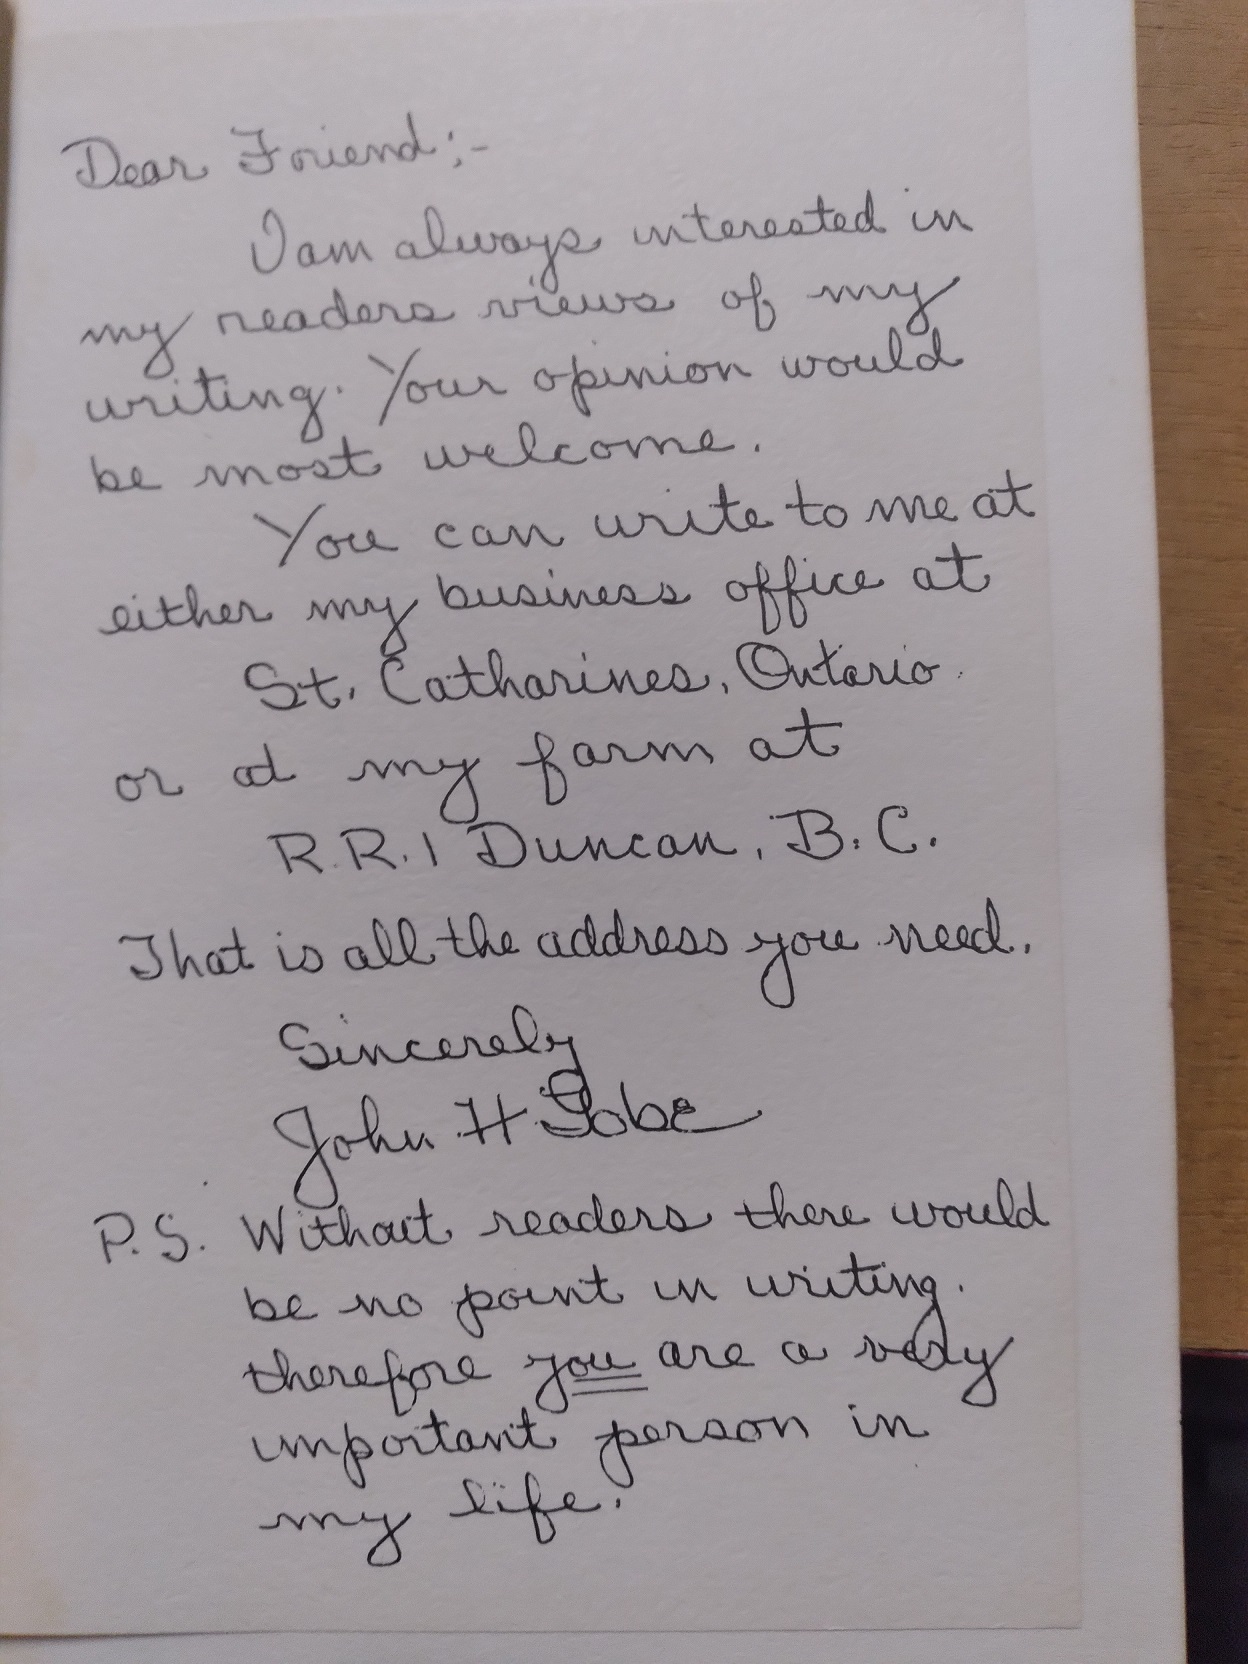 Dear Friend:-
I am always interested in
my readers views of my
writing. Your opinion would
be most welcome.
You can write to me at
either my business office at
St. Catharines, Ontario.
or at my farm at
R.R.1 Duncan, B.C.
That is all the address you need.
Sincerely
John H Gobe
P.S. Without readers there would
be no point in writing.
therefore you are a very
important person in
my life.